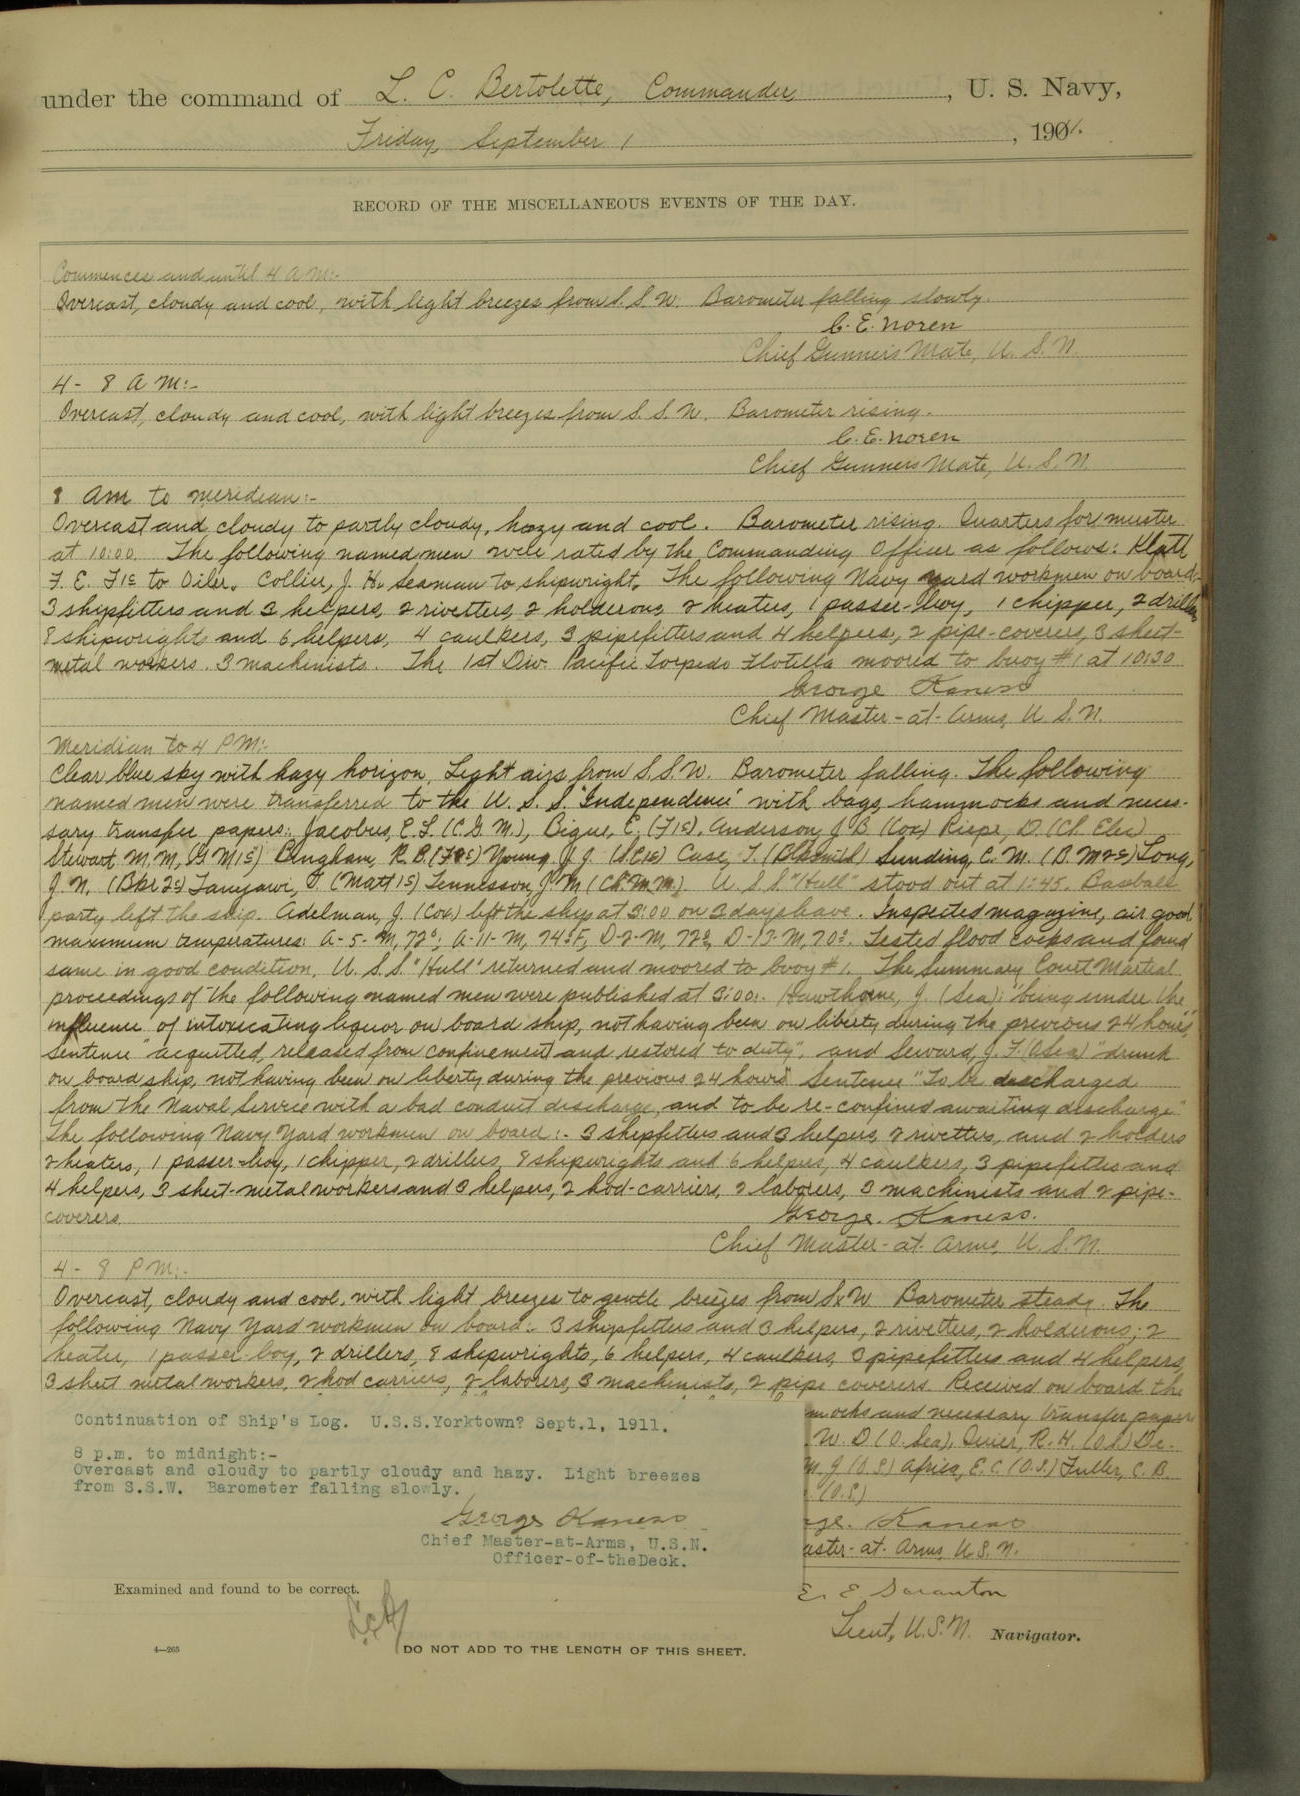 under the command of L. C. Bertolette, Commander, U. S. Navy,
Friday, September 1, 1901.
RECORD OF THE MISCELLANEOUS EVENTS OF THE DAY.
Commences and until 4 A M:-
Overcast, cloudy and cool, with light breezes from S. S. W. Barometer falling slowly.
C. E. Noren
Chief Gunner's Mate, U. S. N.
4 - 8 A M:-
Overcast, cloudy and cool, with light breezes from S. S. W. Barometer rising.
C. E. Noren
Chief Gunners Mate, U. S. N.
8 AM to meridian:-
Overcast and cloudy to partly cloudy, hazy and cool. Barometer rising. Quarters for muster
at 10:00. The following named men were rated by the Commanding Officer as follows: Klatt
F. E. F1c to Oiler. Collier, J. H. Seaman to shipwright. The following Navy yard workmen on board:-
3 shipfitters and 3 helpers, 2 rivetters, 2 holderons, 2 heaters, 1 passer-boy, 1 chipper, 2 drillers
8 shipwrights and 6 helpers, 4 caulkers, 3 pipefitters and 4 helpers, 2 pipe-coverers, 3 sheet-
metal workers. 3 machinists. The 1st Div. Pacific Torpedo Flotilla moored to buoy #1 at 10:30
George Kaness
Chief Master-at-Arms, U. S. N.
Meridian to 4 P M:-
Clear blue sky with hazy horizon, Light airs from S. S. W. Barometer falling. The following
named men were transferred to the U. S. S. "Independence" with bags, hammocks and neces-
sary transfer papers: Jacobus, E. L. (C. G. M.), Bigue, E. (F1c), Anderson, J B (Cox) Riepe, D. (Ch Elec)
Stewart, M. M, (G M1c) Bingham, R. B. (F2c) Young, J. J. (S.C1c) Case, T. (Blksmith) Sunding, C. M. (B. M2c) Long,
J. N. (Bkr 2c) (Matt 1c) Tennesson, J. M (Ch. M. M.) U. S. S. "Hull" stood out at 1:45. Baseball
party left the ship. Adelman, J. (Cox) left the ship at 3:00 on 3 days leave. Inspected magazine, air good,
maximum temperatures: A-5-M, 72°, A-11-M, 74° F, D-2-M, 72°, D-17-M, 70°. Tested flood cocks and found
same in good condition. U. S. S. "Hull" returned and moored to buoy #1. The Summary Court Martial
proceedings of the following named men were published at 3:00:- Hawthorne, J. (Sea): "being under the
influence of intoxicating liquor on board ship, not having been on liberty during the previous 24 hours",
Sentence "acquitted, released from confinement and restored to duty", and Seward, J. F. (OSea) "drunk
on board ship, not having been on liberty during the previous 24 hours" Sentence "To be discharged
from the Naval Service with a bad conduct discharge, and to be re-confined awaiting discharge"
The following Navy Yard workmen on board:- 3 shipfitters and 3 helpers, 2 rivetters, and 2 holders
2 heaters, 1 passer-boy, 1 chipper, 2 drillers, 8 shipwrights and 6 helpers, 4 caulkers, 3 pipefitters and
4 helpers, 3 sheet-metal workers and 3 helpers, 2 hod-carriers, 2 laborers, 3 machinists and 2 pipe-
coverers.
George. Kaness.
Chief Master-at-Arms, U. S. N.
4 - 8 P M:-
Overcast, cloudy and cool, with light breezes to gentle breezes from SxW Barometer steady. The
following Navy Yard workmen on board:- 3 shipfitters and 3 helpers, 2 rivetters, 2 holderons, 2
heater, 1 passer-boy, 2 drillers, 8 shipwrights, 6 helpers, 4 caulkers, 3 pipefitters and 4 helpers,
3 sheet metal workers, 2 hod carriers, 2 laborers, 3 machinists, 2 pipe coverers. Received on board the
mocks and necessary transfer papers
W. D (O. Sea), R. H. (O.S.) De-
M. J (O.S.) Africa, E. C. (O.S.) Fuller, C. B.
(O.S.)
ge. Kaness
aster-at-Arms, U. S. N.
Continuation of Ship's Log. U.S.S.Yorktown? Sept.1, 1911.
8 p.m. to midnight:-
Overcast and cloudy to partly cloudy and hazy. Light breezes
from S.S.W. Barometer falling slowly.
George Kaness
Chief Master-at-Arms, U.S.N.
Officer-of-theDeck.
Examined and found to be correct.
L.C.B
E. E Scranton
Lieut, U.S.N. Navigator.
4—265
DO NOT ADD TO THE LENGTH OF THIS SHEET.